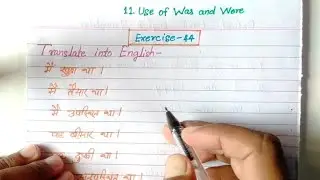 11 Use of Was and Were
Exercise-44
Translate into English-
मैं खुश था।
मैं तैयार था।
मैं उपस्थित था।
वह बीमार था।
दुखी था।
अनुपस्थित था।